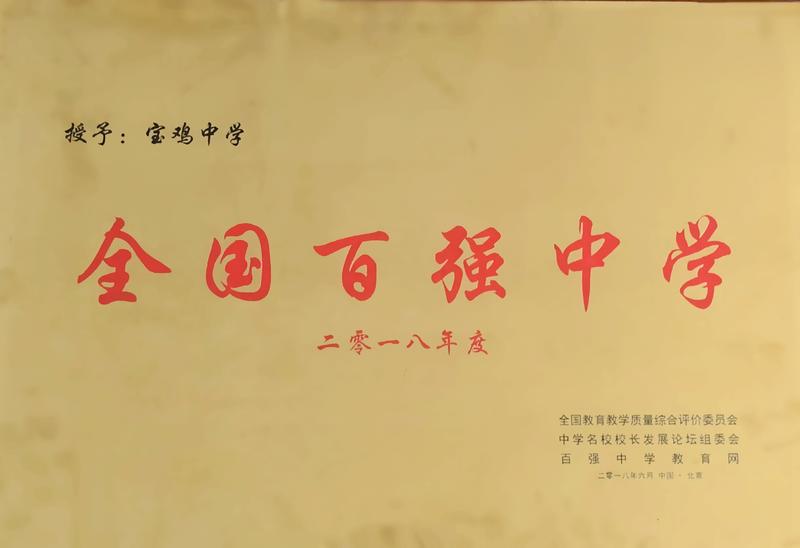 授予：宝鸡中学
全国百强中学
二零一八年度
全国教育教学质量综合评价委员会
中学名校校长发展论坛组委会
百强中学教育网
二零一八年六月 中国·北京